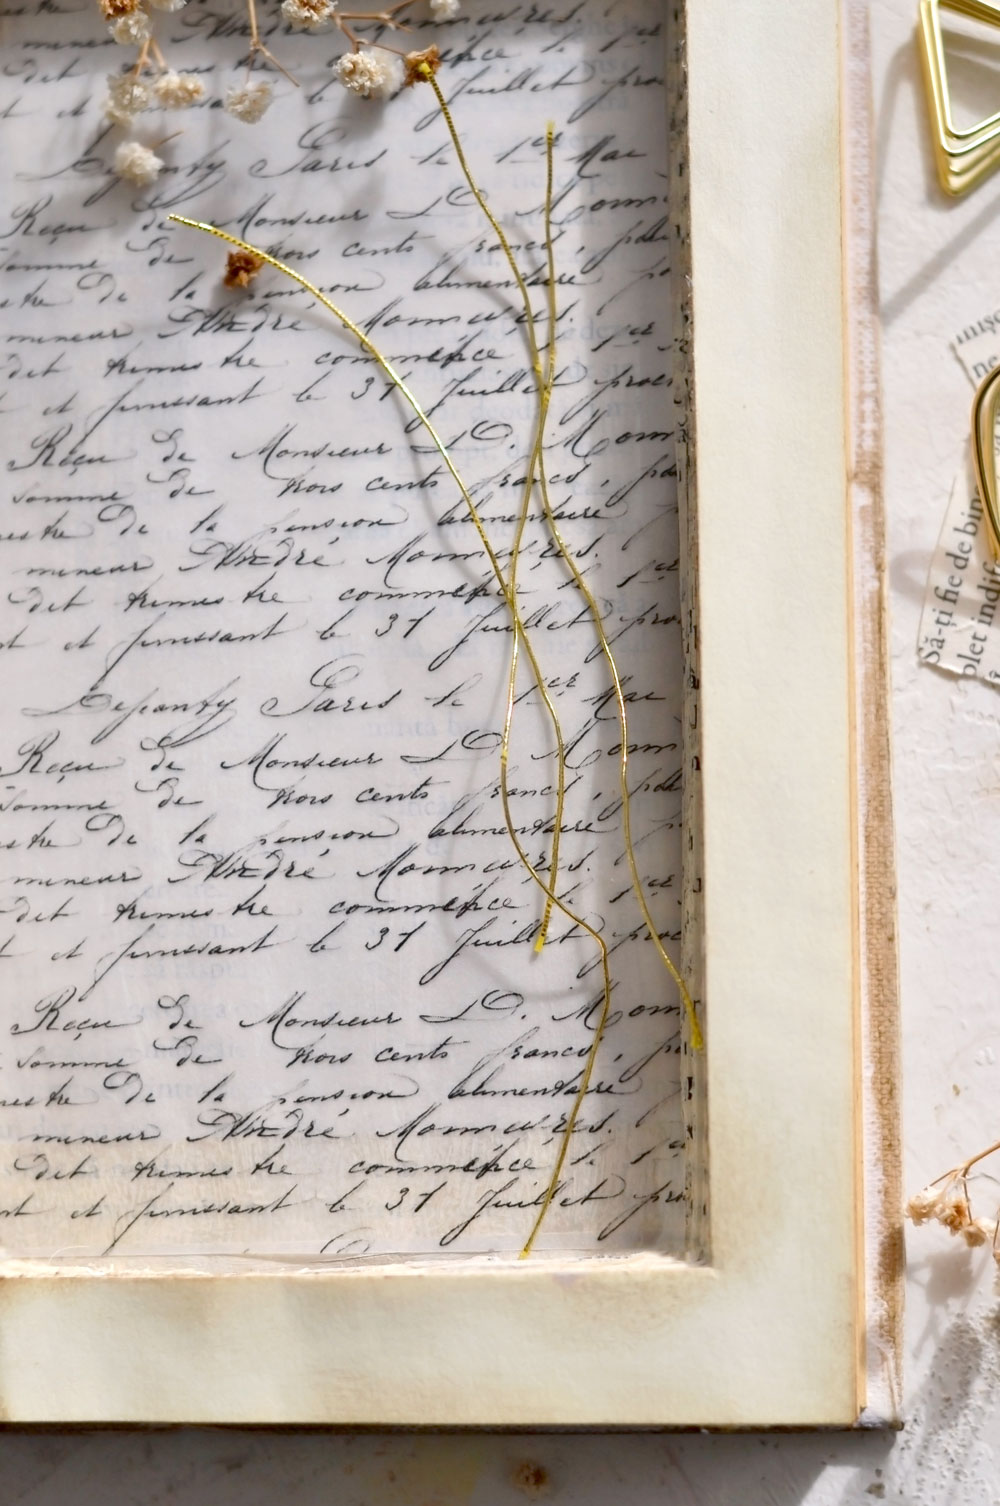 meneur André Monnières.
dit trimestre commence le 1er
t et finissant le 31 Juillet proc
Depenty Paris le 1er Mai
Reçu de Monsieur D. Monn
Somme de trois cents francs, pou
estre de la pension alimentaire po
mineur André Monnières.
dit trimestre commence le 1er
t et finissant le 31 Juillet proc
Reçu de Monsieur D. Monn
Somme de trois cents francs, pou
estre de la pension alimentaire p
mineur André Monnières.
dit trimestre commence le 1er
nt et finissant le 31 Juillet pro
Depenty Paris le 1er Mai
Reçu de Monsieur D. Monn
Somme de trois cents francs, pou
estre de la pension alimentaire p
mineur André Monnières.
dit trimestre commence le 1er
t et finissant le 31 Juillet proc
Reçu de Monsieur D. Monn
Somme de trois cents francs, po
estre de la pension alimentaire
mineur André Monnières.
dit trimestre commence le 1e
nt et finissant le 31 Juillet pro
Să-ți fie de bine
plet indife